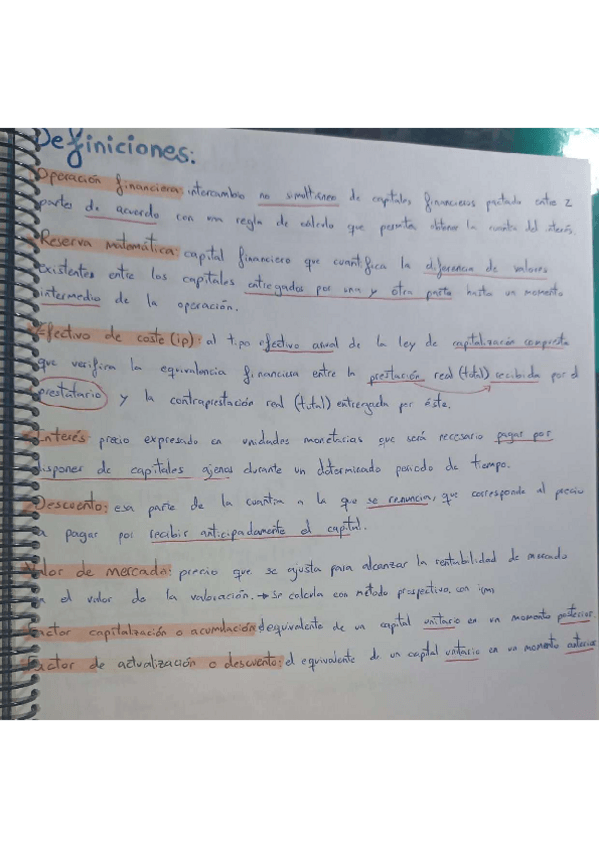 Definiciones:
Operación financiera: intercambio no simultáneo de capitales financieros pactado entre 2
partes de acuerdo con una regla de cálculo que permita obtener la cuantía del interés.
Reserva matemática: capital financiero que cuantifica la diferencia de valores
existentes entre los capitales entregados por una y otra parte hasta un momento
intermedio de la operación.
Efectivo de coste (ip): al tipo efectivo anual de la ley de capitalización compuesta
que verifica la equivalencia financiera entre la prestación real (total) recibida por el
prestatario y la contraprestación real (total) entregada por éste.
Interés: precio expresado en unidades monetarias que será necesario pagar por
disponer de capitales ajenos durante un determinado periodo de tiempo.
Descuento: esa parte de la cuantía a la que se renuncia, que corresponde al precio
a pagar por recibir anticipadamente el capital.
Valor de mercado: precio que se ajusta para alcanzar la rentabilidad de mercado
en el valor de la valoración. → Se calcula con método prospectivo, con
Factor capitalización o acumulación: equivalente de un capital unitario en un momento posterior.
Factor de actualización o descuento: el equivalente de un capital unitario en un momento anterior